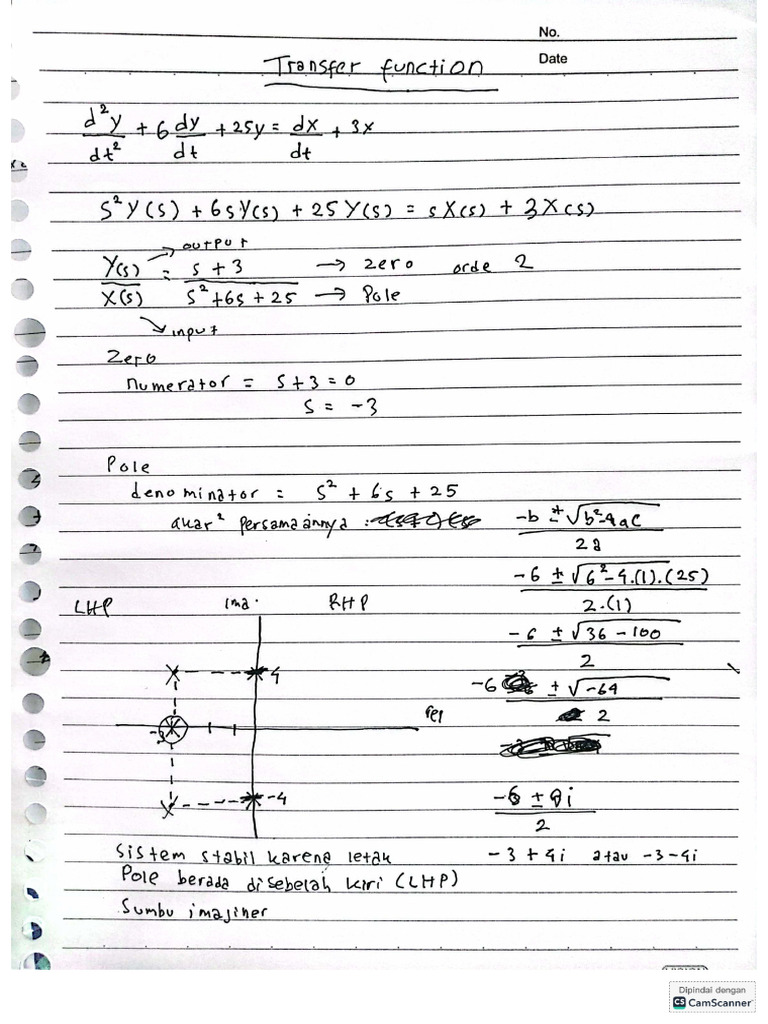 No.
Date
Transfer function
d²y/dt² + 6 dy/dt + 25y = dx/dt + 3x
s²Y(s) + 6sY(s) + 25Y(s) = sX(s) + 3X(s)
→ output
Y(s)/X(s) = (s + 3)/(s² + 6s + 25) → zero orde 2
→ Pole
→ input
Zero
numerator = s + 3 = 0
s = -3
Pole
denominator = s² + 6s + 25
akar² persamaannya : (-b ± √(b² - 4ac))/2a
(-6 ± √(6² - 4.(1).(25)))/2.(1)
(-6 ± √(36 - 100))/2
(-6 ± √(-64))/2
(-6 ± 8i)/2
-3 + 4i atau -3 - 4i
LHP ima. RHP
4
rel
-3
-4
Sistem stabil karena letak
Pole berada disebelah kiri (LHP)
Sumbu imajiner
Dipindai dengan
CS CamScanner